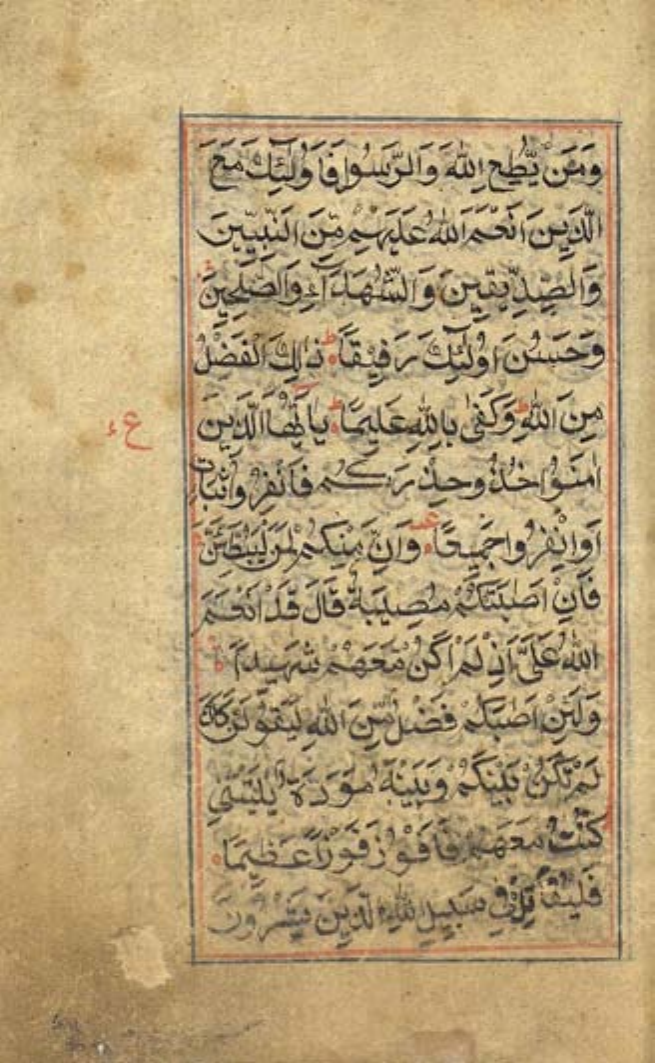 وَمَنْ يُّطِعِ اللّٰهَ وَالرَّسُوْلَ فَاُولٰٓئِكَ مَعَ
الَّذِيْنَ اَنْعَمَ اللّٰهُ عَلَيْهِمْ مِّنَ النَّبِيّٖنَ
وَالصِّدِّيْقِيْنَ وَالشُّهَدَآءِ وَالصّٰلِحِيْنَ
وَحَسُنَ اُولٰٓئِكَ رَفِيْقًا ط ذٰلِكَ الْفَضْلُ
مِنَ اللّٰهِ ط وَكَفٰى بِاللّٰهِ عَلِيْمًا ط يٰٓاَيُّهَا الَّذِيْنَ
ع
اٰمَنُوْا خُذُوْا حِذْرَكُمْ فَانْفِرُوْا ثُبَاتٍ
اَوِ انْفِرُوْا جَمِيْعًا وَاِنَّ مِنْكُمْ لَمَنْ لَّيُبَطِّئَنَّ
فَاِنْ اَصَابَتْكُمْ مُّصِيْبَةٌ قَالَ قَدْ اَنْعَمَ
اللّٰهُ عَلَيَّ اِذْ لَمْ اَكُنْ مَّعَهُمْ شَهِيْدًا
وَلَئِنْ اَصَابَكُمْ فَضْلٌ مِّنَ اللّٰهِ لَيَقُوْلَنَّ كَاَنْ
لَّمْ تَكُنْ بَيْنَكُمْ وَبَيْنَهٗ مَوَدَّةٌ يّٰلَيْتَنِيْ
كُنْتُ مَعَهُمْ فَاَفُوْزَ فَوْزًا عَظِيْمًا
فَلْيُقَاتِلْ فِيْ سَبِيْلِ اللّٰهِ الَّذِيْنَ يَشْرُوْنَ